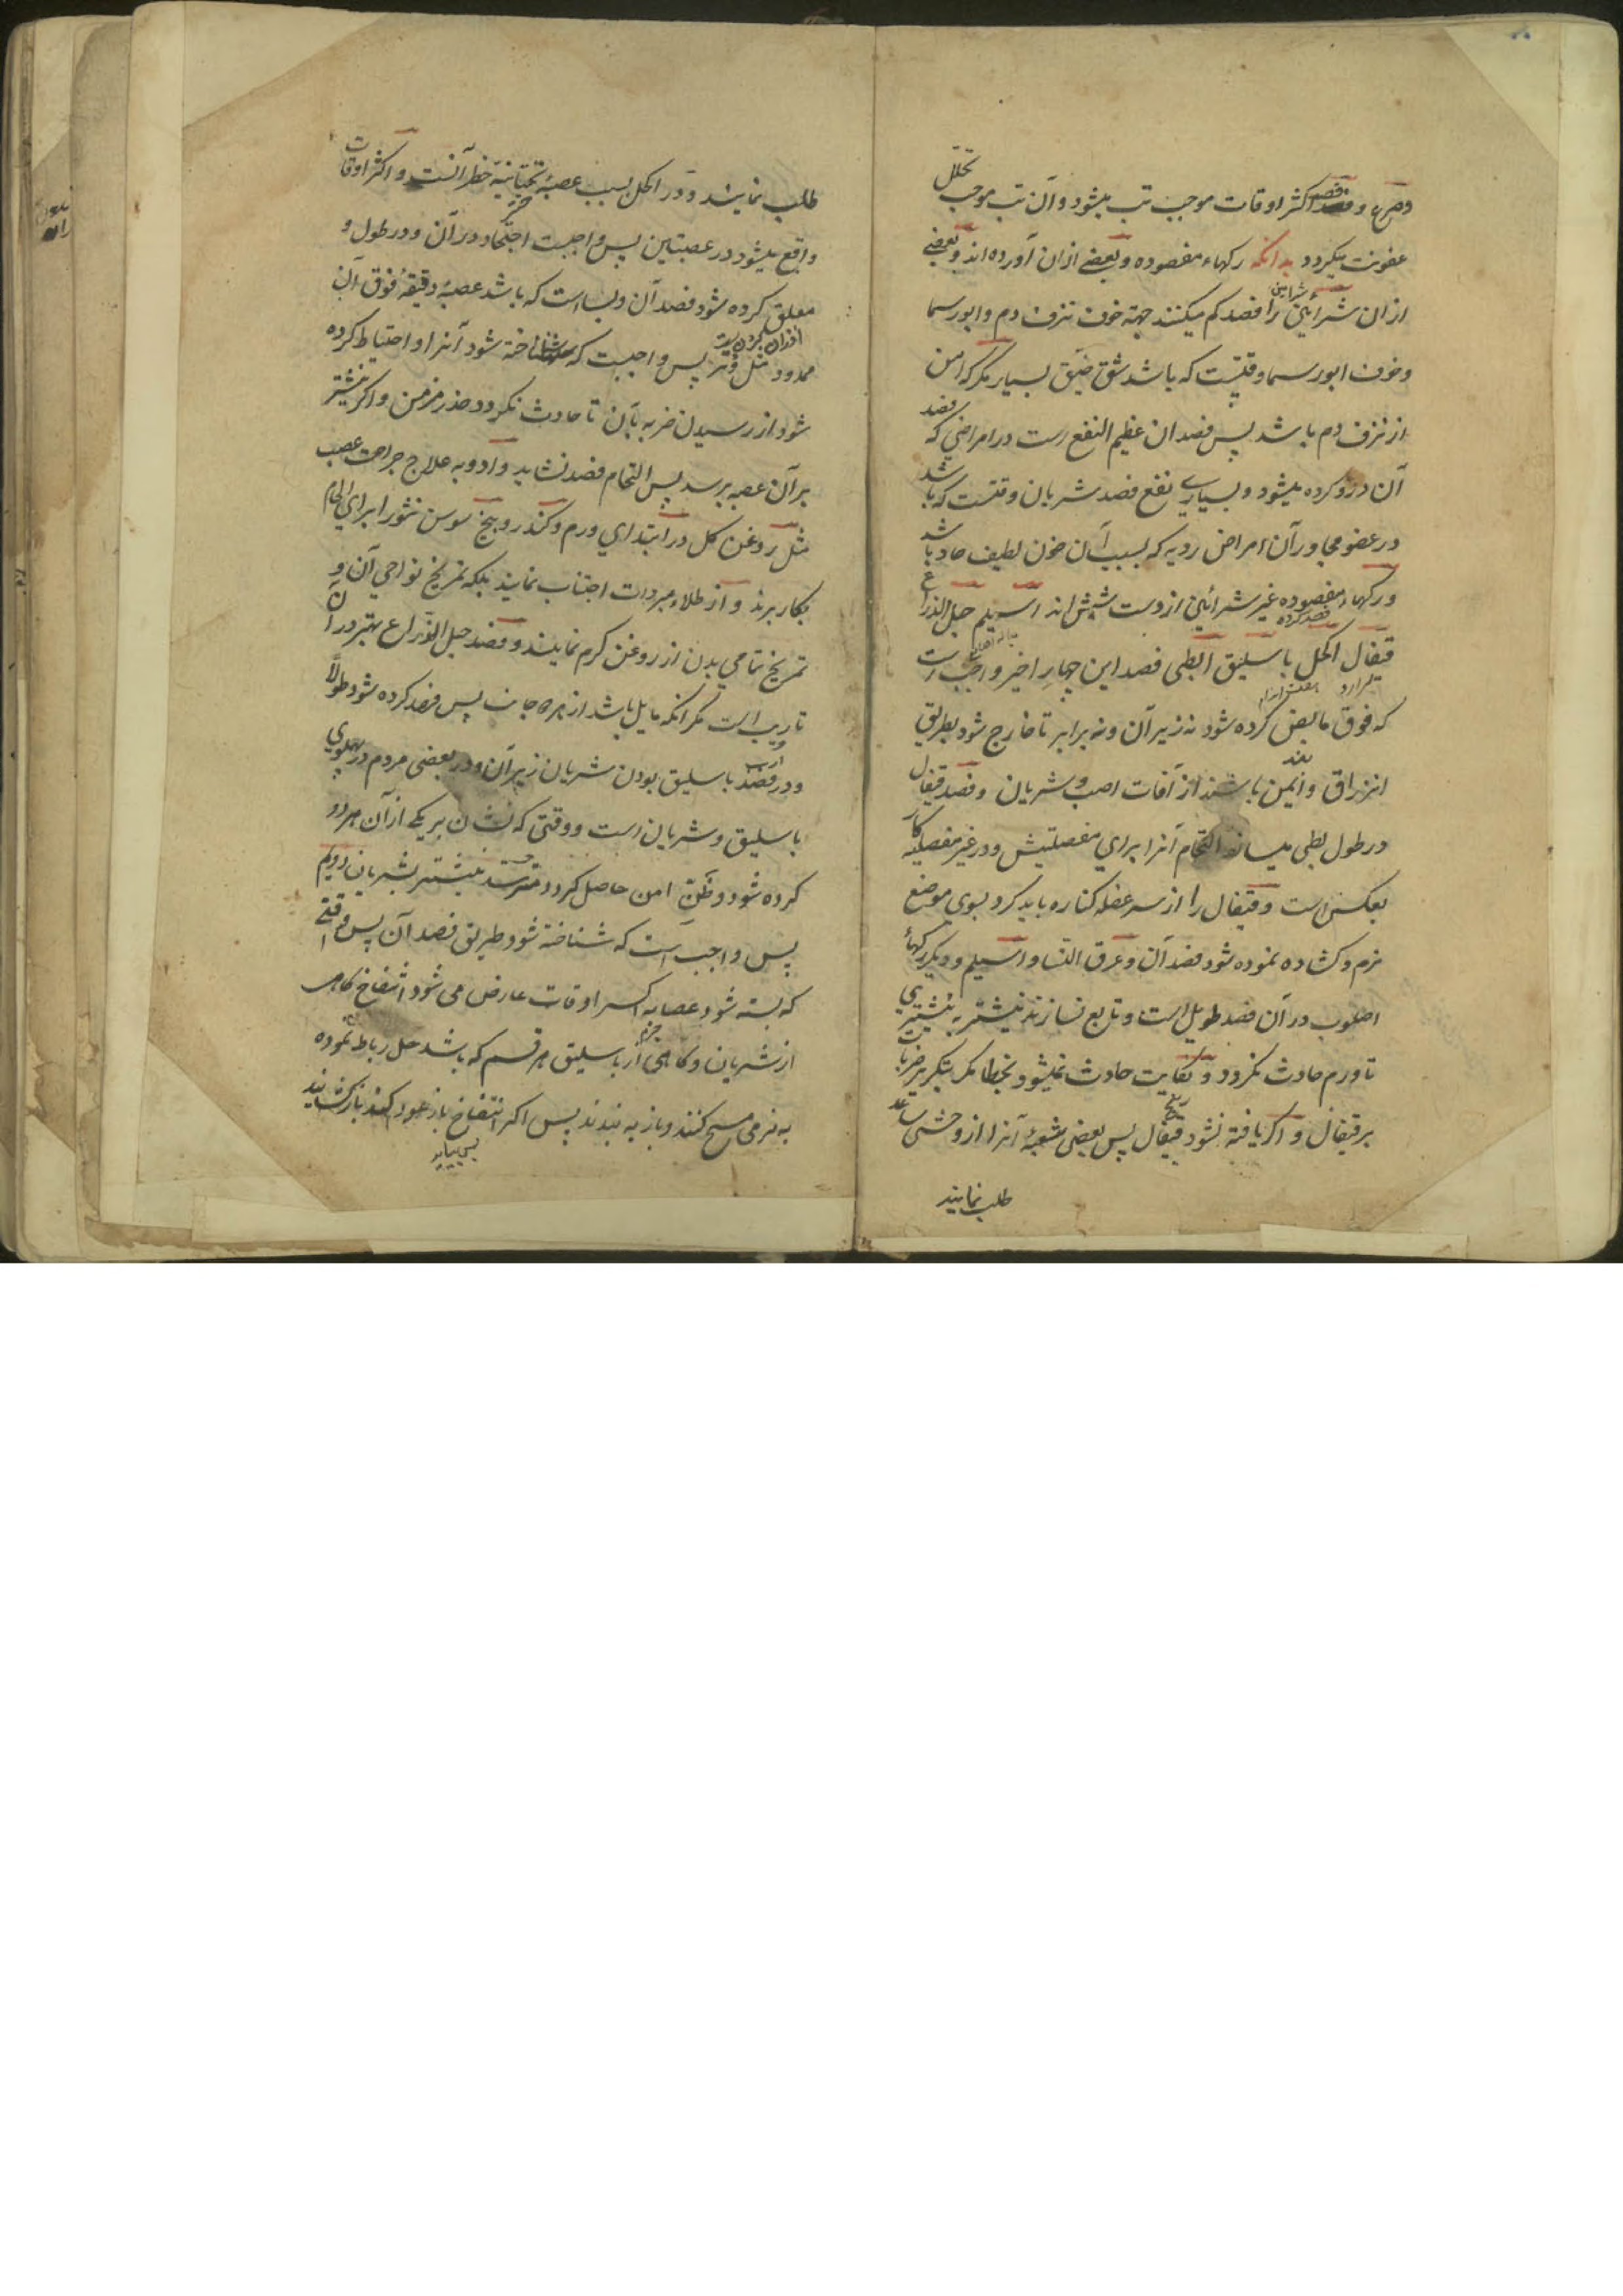 و صرع و فصد اکثر اوقات موجب تب میشود و آن تب موجب تحلل
عفونت میگردد بدانکه رکهاء مفصوده و بعضے ازان آورده اند و بعضے
ازان شرائین را فصد کم میکنند جهة خوف نزف دم و ابورسما
و خوف ابورسما وقتیست که باشد شق ضیق بسیار مگر که امن
از نزف دم باشد پس فصد ان عظیم النفع است در امراضی که فصد
آن درو کرده میشود و بسیاری نفع فصد شریان وقتست که باشد
در عضو مجاور آن امراض ردیه که بسبب آن خون لطیف حاد باشد
و رکهاء مفصوده غیر شرائین از دست شش اند اسیلم حبل الذراع
قیفال اکحل باسلیق ابطی فصد این چهار اخیر واجب است
که فوق مابض کرده شود نه زیر آن و نه برابر تا خارج شود بطریق
انزراق و ایمن باشند از آفات عصب و شریان و فصد قیفال
در طول بطی میسازد التحام آنرا برای مفصلیتش و در غیر مفصلیه کار
بعکس است و قیفال را از سر عضله کناره باید کرد بسوی موضع
نرم و کشاده نموده شود فصد آن و عرق النسا و اسیلم و دیگر رکهاء
اصلوب در آن فصد طویل است و تابع نسازند نیشتر به نیشتری
تا ورم حادث نگردد و نکایت حادث نمیشود بخطا مگر بتکریر ضربات
بر قیفال و اگر یافته نشود قیفال پس بعضی شعبهٔ آنرا از وحشی ساعد
طلب نمایند
طلب نمایند و در اکحل بسبب عصبهٔ تحتانیه خطر آنست و اکثر اوقات
واقع میشود در عصبتین پس واجبست احتیاط در آن و در طول و
معلق کرده شود فصد آن و بسا است که باشد عصبهٔ دقیقهٔ فوق آن
ممدود مثل وتر پس واجبست که شناخته شود آنرا و احتیاط کرده
شود از رسیدن ضربه بآن تا حادث نگردد خدر مزمن و اکر نیشتر
بر آن عصبه برسد پس التحام فصد نشاید و ادویه علاج جراحت عصب
مثل روغن کل در ابتدای ورم و کندر و بیخ سوسن نثور ابرای الحام
بکار برند و از طلاء مبردات اجتناب نمایند بلکه تمریخ نواحی آن و
تمریخ تمامی بدن از روغن کرم نمایند و فصد حبل الذراع بهتر در آن
تاریب است مگر انکه مایل باشد از هر دو جانب پس فصد کرده شود طولاً
و در فصد باسلیق بودن شریان زیر آن و در بعضی مردم در پهلوی
باسلیق دو شریان است و وقتی که نشان بر یکے از آن هر دو
کرده شود و ظن امن حاصل کردد میرسد نیشتر بشریان دویم
پس واجب است که شناخته شود طریق فصد آن پس وقتی
که بسته شود عصابه اکثر اوقات عارض می شود انتفاخ کاهی
از شریان و کاهی از باسلیق هر قسم که باشد حل رباط نموده
به نرمی مسح کنند و باز به بندند پس اکر انتفاخ باز عود کند باز کشایند